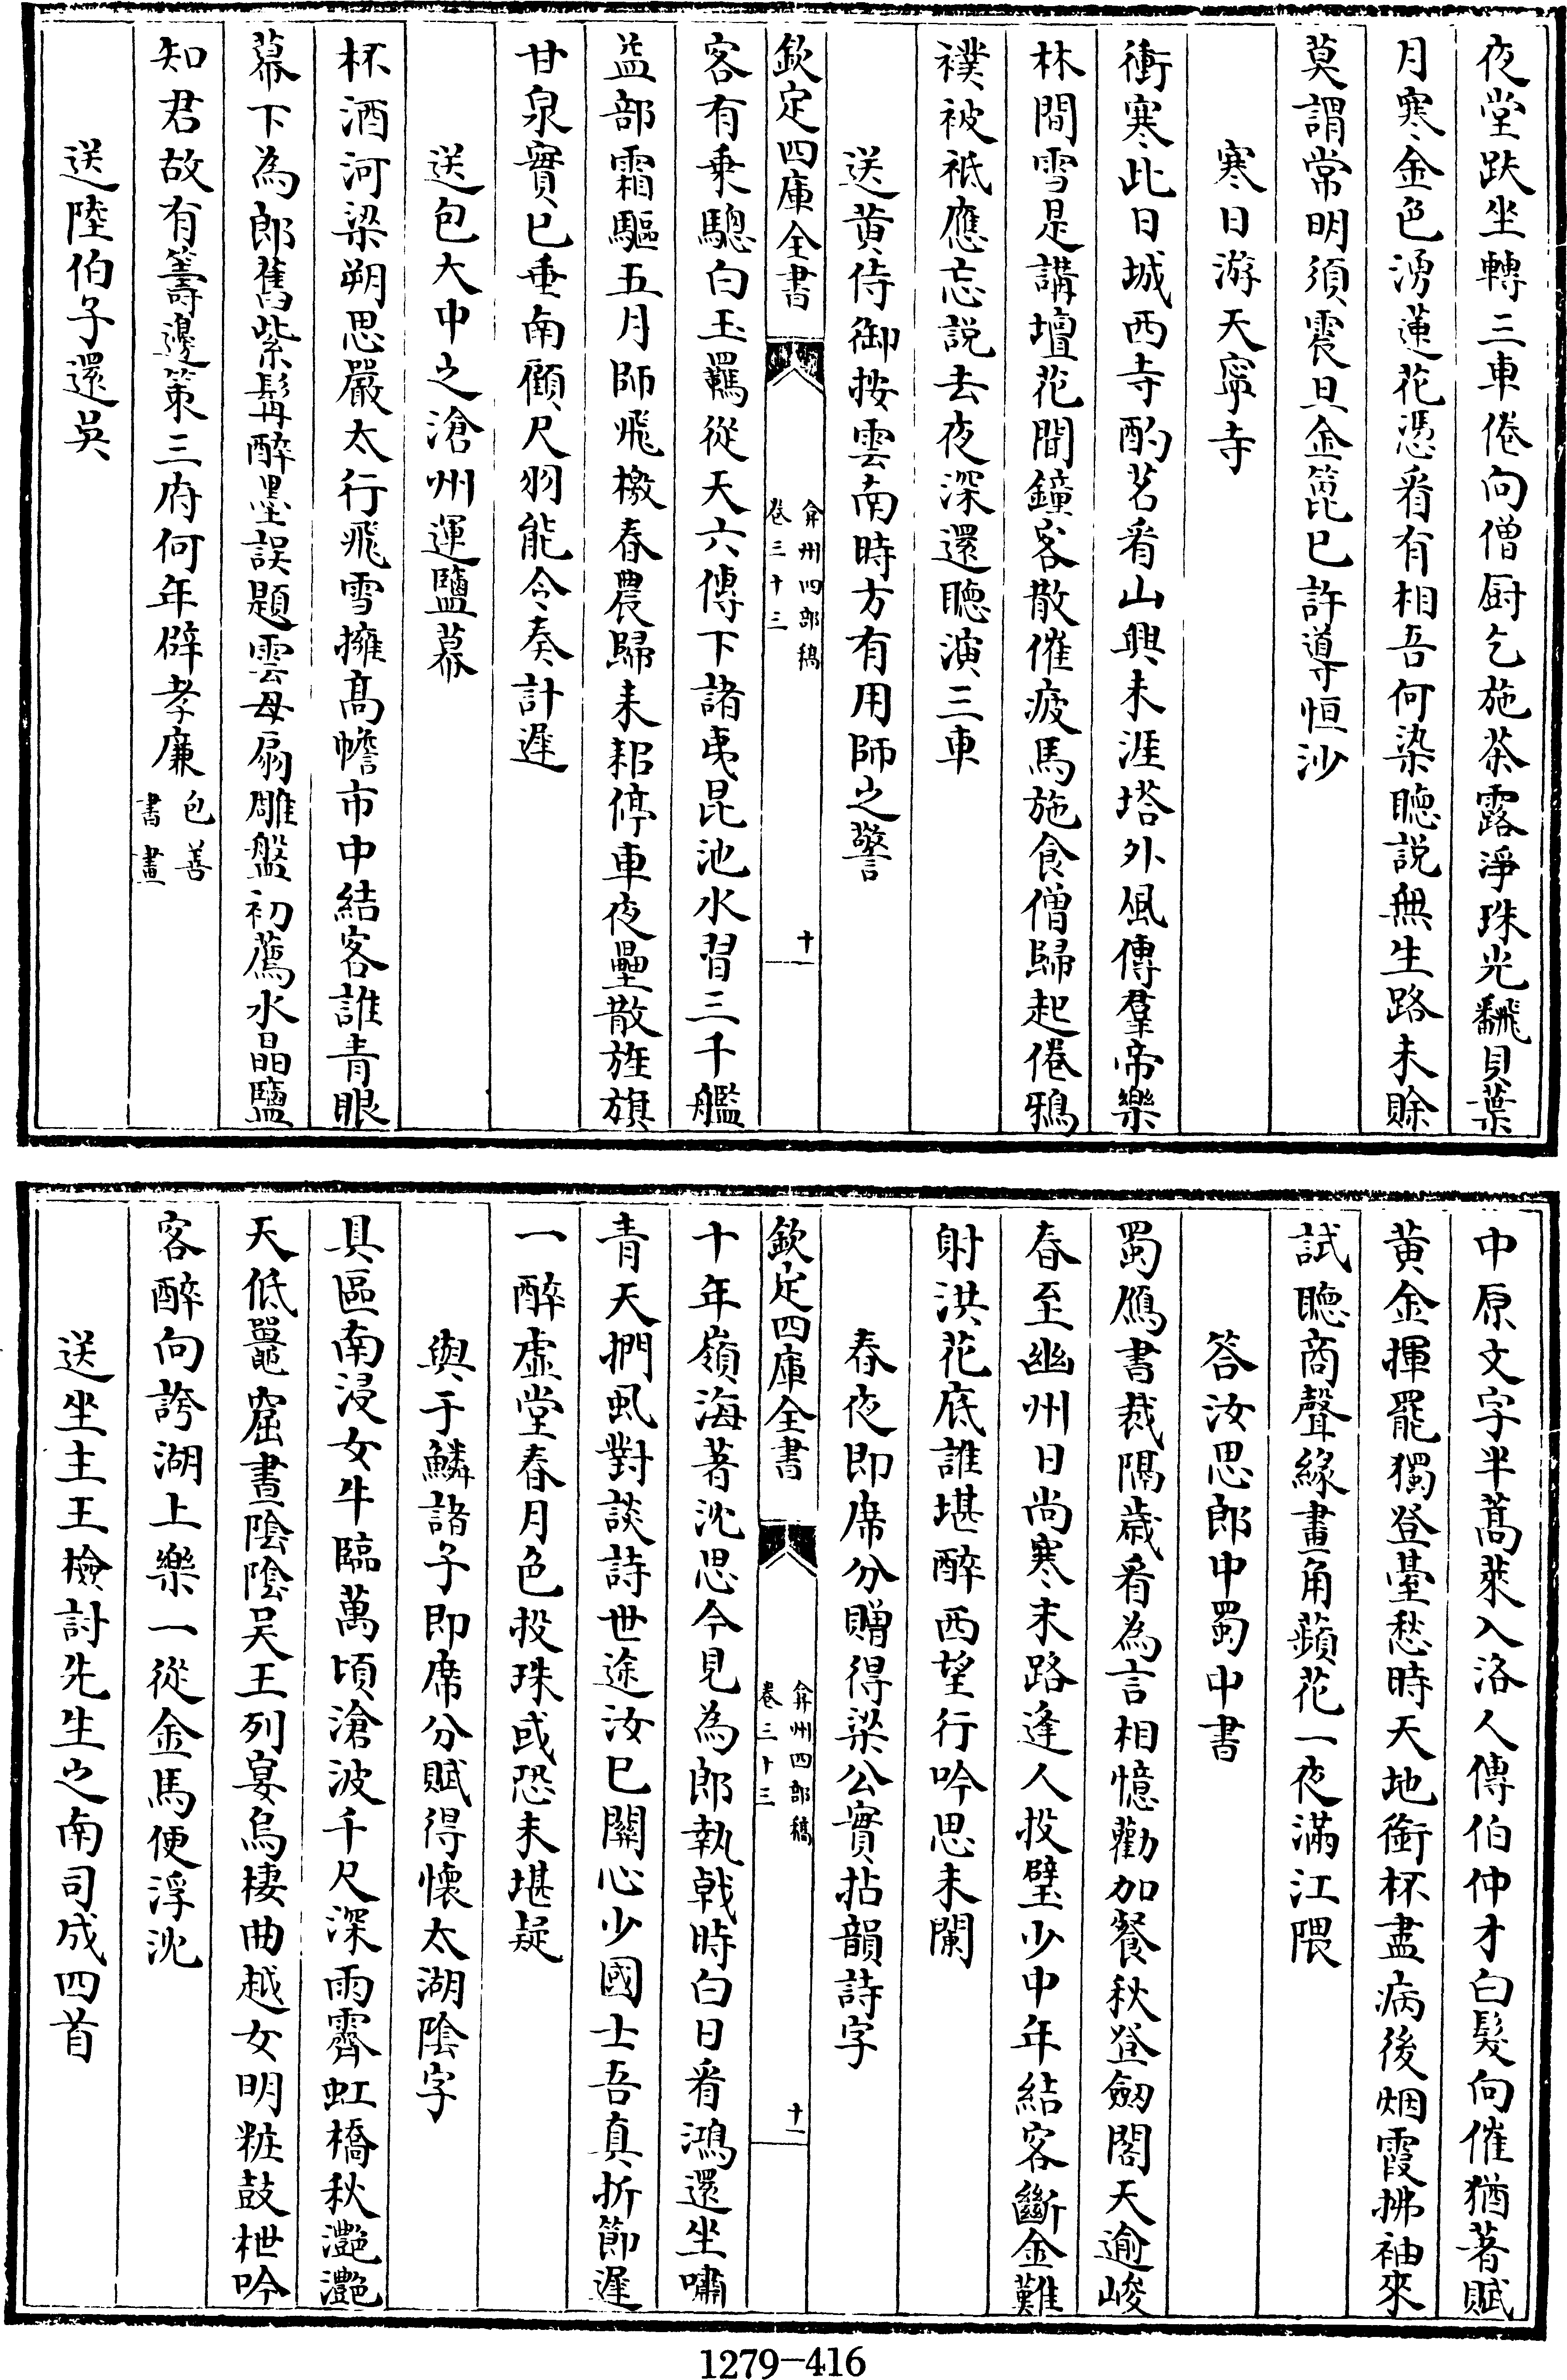 夜堂趺坐轉三車倦向僧厨乞施茶露淨珠光飜貝葉
月寒金色湧蓮花憑看有相吾何染聽説無生路未賒
莫謂常明須震旦金篦已許導恒沙
寒日游天寧寺
衝寒此日城西寺酌茗看山興未涯塔外風傳羣帝樂
林間雪是講壇花間鐘客散催疲馬施食僧歸起倦鴉
襆被祗應忘説去夜深還聽演三車
送黄侍御按雲南時方有用師之警
欽定四庫全書
弇州四部稿
卷三十三
十
客有乗驄白玉羈從天六傳下諸夷昆池水習三千艦
益部霜驅五月師飛檄春農歸耒耜停車夜壘散旌旗
甘泉實已垂南顧尺羽能令奏計遲
送包大中之滄州運鹽幕
杯酒河梁朔思嚴太行飛雪擁髙幨市中結客誰青眼
幕下為郎舊紫髯醉墨誤題雲母扇雕盤初薦水晶鹽
知君故有籌邊策三府何年辟孝廉包善書畫
送陸伯子還吳
中原文字半蒿萊入洛人傳伯仲才白髮向催猶著賦
黄金揮罷獨登臺愁時天地銜杯盡病後烟霞拂袖來
試聽商聲緣畫角蘋花一夜滿江隈
答汝思郎中蜀中書
蜀鴈書裁隔歳看為言相憶勸加餐秋登劒閣天逾峻
春至幽州日尚寒末路逢人投璧少中年結客斷金難
射洪花底誰堪醉西望行吟思未闌
春夜即席分贈得梁公實拈韻詩字
欽定四庫全書
弇州四部稿
卷三十三
十一
十年嶺海著沈思今見為郎執戟時白日看鴻還坐嘯
青天捫虱對談詩世途汝已關心少國士吾真折節遲
一醉虚堂春月色投珠或恐未堪疑
與于鱗諸子即席分賦得懐太湖陰字
具區南浸女牛臨萬頃滄波千尺深雨霽虹橋秋灔灔
天低鼉窟晝陰陰吴王列宴烏棲曲越女明粧鼓枻吟
客醉向誇湖上樂一從金馬便浮沈
送坐主王檢討先生之南司成四首
1279-416